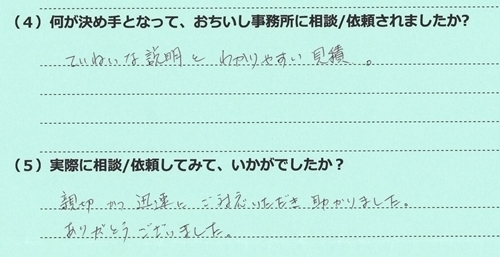 （４）何が決め手となって、おちいし事務所に相談/依頼されましたか?
ていねいな説明と わかりやすい見積。
（５）実際に相談/依頼してみて、いかがでしたか？
親切かつ迅速に ご対応いただき 助かりました。
ありがとうございました。